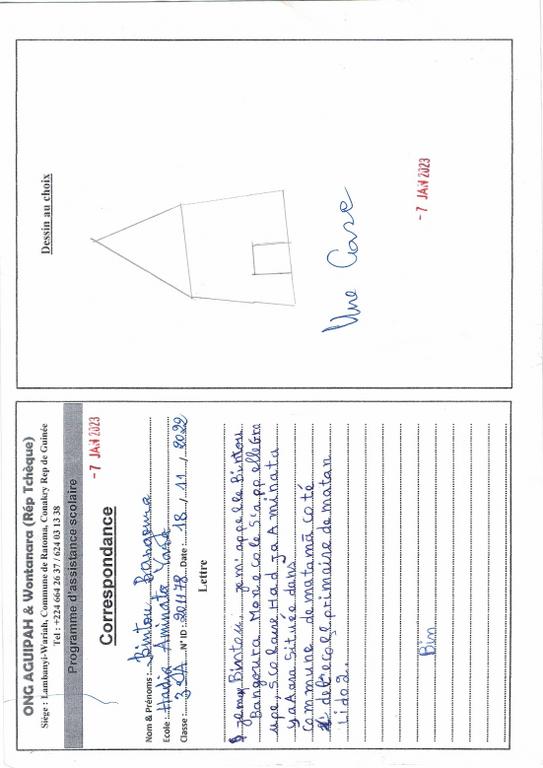 ONG AGUIPAH & Wontanara (Rép Tchèque)
Siège : Lambanyi-Wariah, Commune de Ratoma, Conakry Rep de Guinée
Tel : +224 664 26 37 / 624 03 13 38
Programme d'assistance scolaire
- 7 JAN 2023
Correspondance
Nom & Prénoms : Bintou Bangoura
Ecole : Hadja Aminata Yara
Classe : 3eA N° ID : 201178 Date : 18 / 11 / 2022
Lettre
Bintou jem'appelle Bintou
Bangoura Mon ecole S'appelle Gro
upe, Scolaire Had ja Aminata
yaAara Située dans
Commune de matamã coté
de l'ecole primaire de matan
Lidoa.
Bin
Dessin au choix
Une Case
- 7 JAN 2023